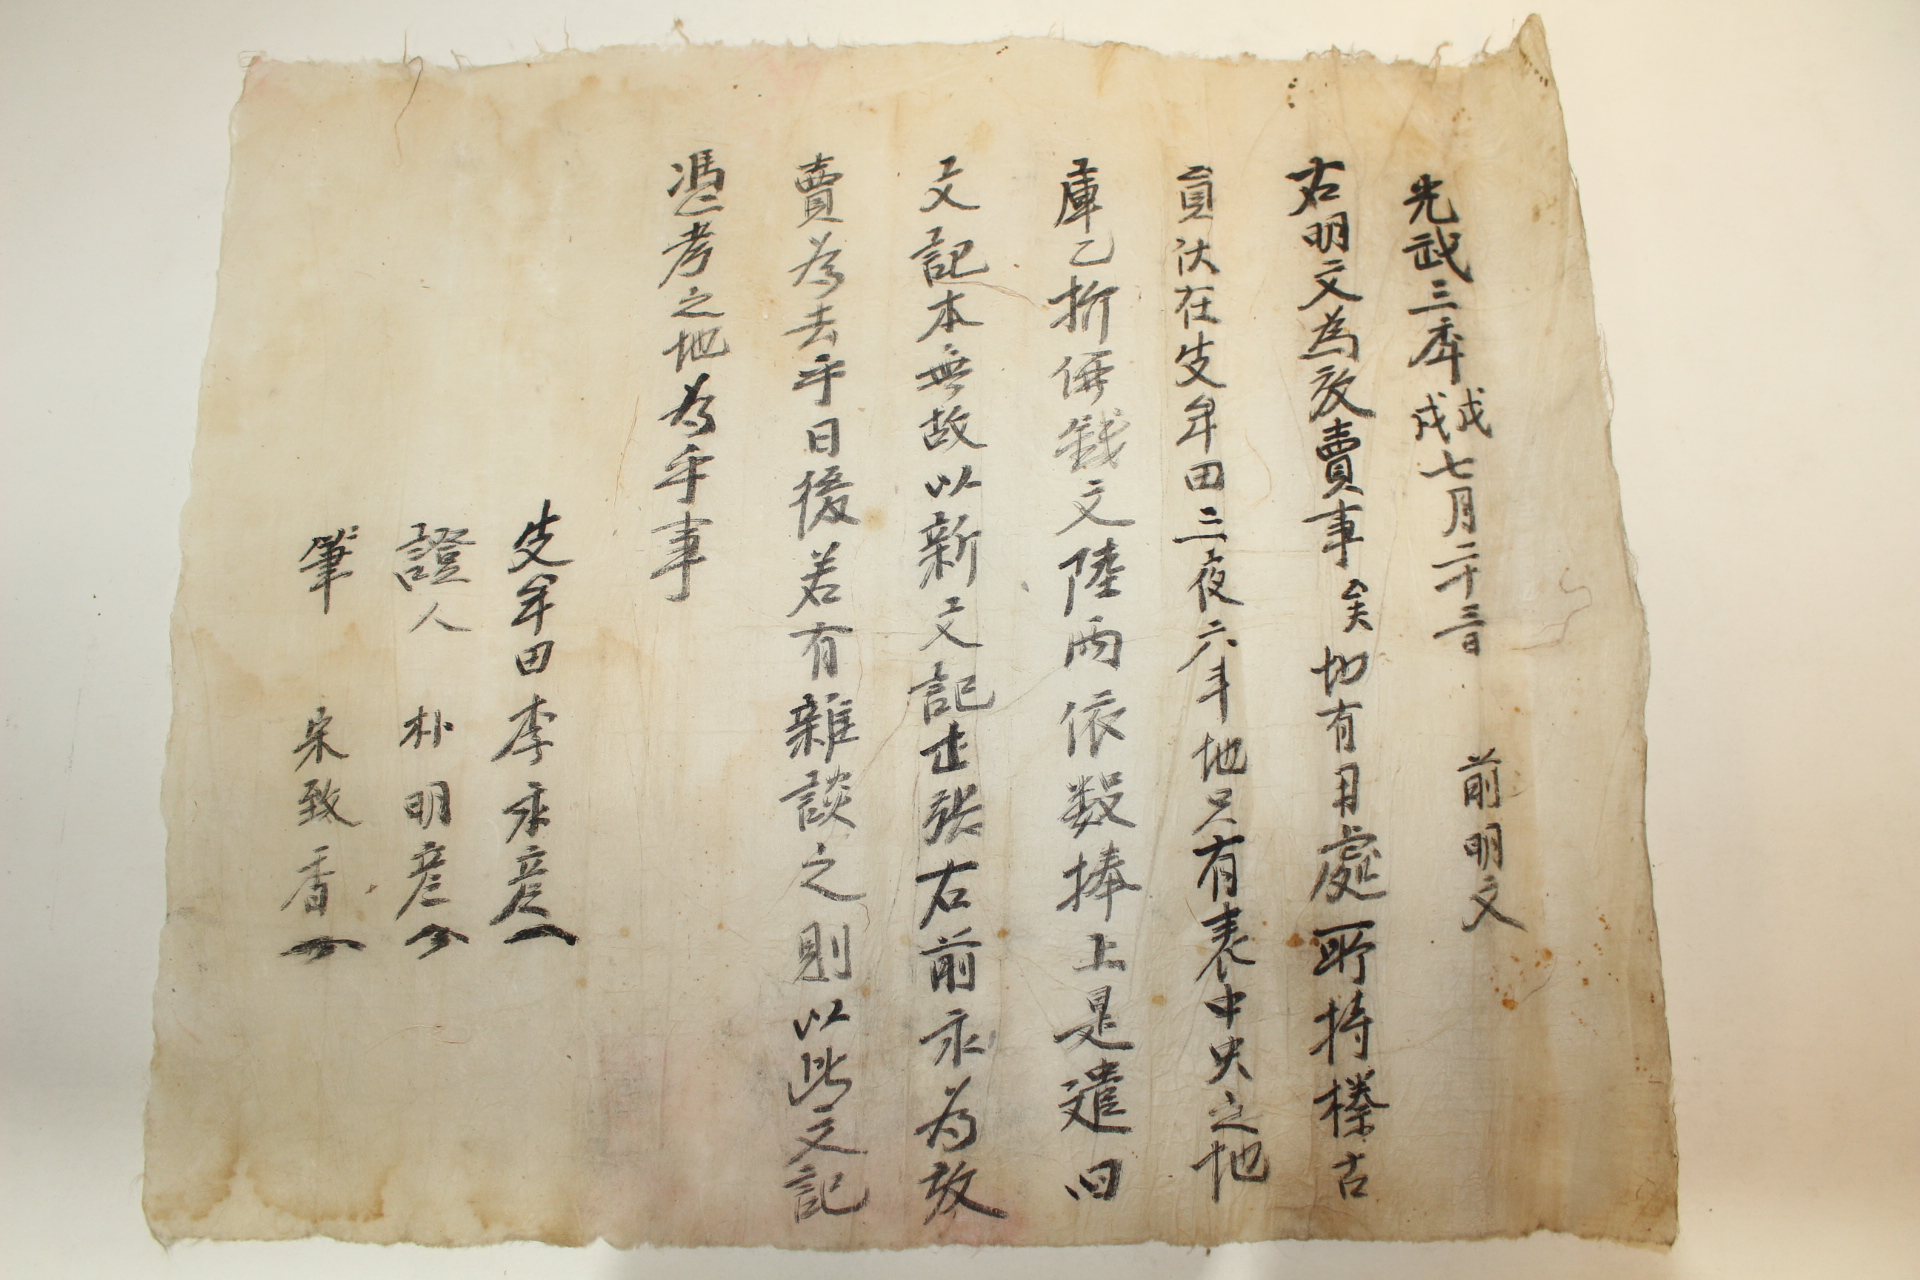 光武三年戊戌七月二十三日 前明文
右明文為放賣事矣切有用處所持榛古
員伏在攴牟田三夜六斗地只有表中央之地
庫乙折価錢文陸両依数捧上是遣曰
文記本無故以新文記壹張右前永為放
賣為去乎日後若有雜談之則以此文記
憑考之地為乎事
攴牟田李永彦
證人 朴明彦
筆 宋致香